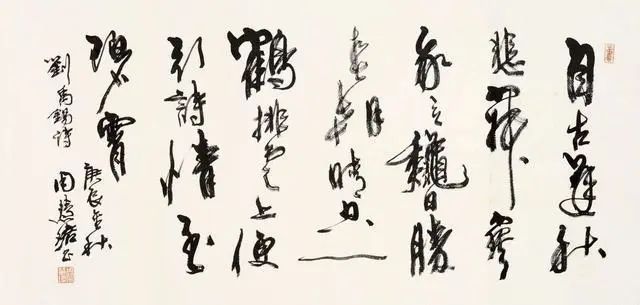 自古逢秋
悲寂寥
我言穐日勝
春朝晴空一
鶴排雲上便
引詩情到
碧霄
劉禹錫詩
庚辰金秋
周慧珺书